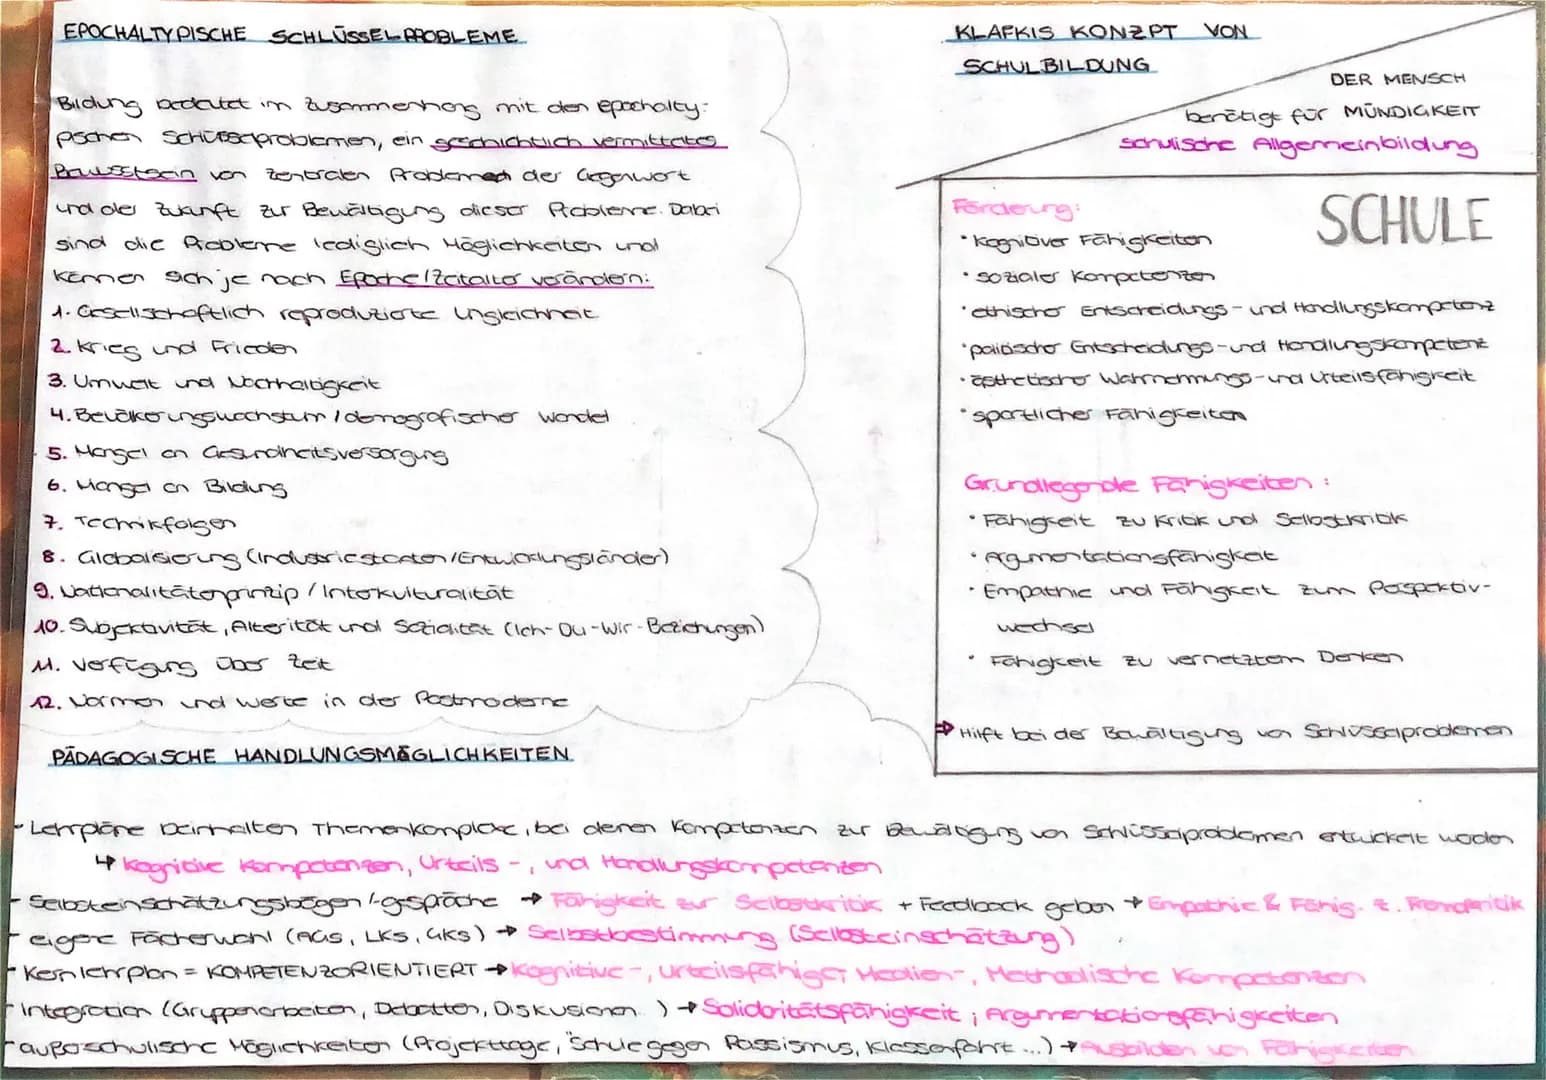 EPOCHALTYPISCHE SCHLÜSSELPROBLEME
Bildung bedeutet im Zusammenhang mit den epochalty-
pischen Schlüsselproblemen, ein geschichtlich vermitteltes
Bewusstsein von zentralen Problemen der Gegenwart
und der Zukunft zur Bewältigung dieser Probleme. Dabei
sind die Probleme lediglich Möglichkeiten und
können sich je nach Epoche/Zeitalter verändern:
1. Gesellschaftlich reproduzierte Ungleichheit
2. Krieg und Frieden
3. Umwelt und Nachhaltigkeit
4. Bevölkerungswachstum / demografischer Wandel
5. Mangel an Gesundheitsversorgung
6. Mangel an Bildung
7. Technikfolgen
8. Globalisierung (Industriestaaten/Entwicklungsländer)
9. Nationalitätenprinzip / Interkulturalität
10. Subjektivität, Alterität und Sozialität (Ich-Du-Wir-Beziehungen)
11. Verfügung über Zeit
12. Normen und Werte in der Postmoderne
KLAFKIS KONZPT VON
SCHULBILDUNG
DER MENSCH
benötigt für MÜNDIGKEIT
schulische Allgemeinbildung
SCHULE
Förderung:
• kognitiver Fähigkeiten
• sozialer Kompetenzen
• ethischer Entscheidungs- und Handlungskompetenz
• politischer Entscheidungs- und Handlungskompetenz
• ästhetischer Wahrnehmungs- und Urteilsfähigkeit
• sportlicher Fähigkeiten
Grundlegende Fähigkeiten:
• Fähigkeit zu Kritik und Selbstkritik
• Argumentationsfähigkeit
• Empathie und Fähigkeit zum Perspektiv-
wechsel
• Fähigkeit zu vernetztem Denken
⇒ Hilft bei der Bewältigung von Schlüsselproblemen
PÄDAGOGISCHE HANDLUNGSMÖGLICHKEITEN
- Lehrpläne beinhalten Themenkomplexe, bei denen Kompetenzen zur Bewältigung von Schlüsselproblemen entwickelt werden
↳ Kognitive Kompetenzen, Urteils-, und Handlungskompetenzen
- Selbsteinschätzungsbögen/-gespräche → Fähigkeit zur Selbstkritik + Feedback geben → Empathie & Fähig. z. Fremdkritik
- eigene Fächerwahl (AGs, LKs, GKs) → Selbstbestimmung (Selbsteinschätzung)
- Kernlehrplan = KOMPETENZORIENTIERT → Kognitive-, Urteilsfähige, Medien-, Methodische Kompetenzen
- Integration (Gruppenarbeiten, Debatten, Diskusionen..) → Solidaritätsfähigkeit, Argumentationsfähigkeiten
- außerschulische Möglichkeiten (Projekttage, "Schule gegen Rassismus, Klassenfahrt...) → Ausbilden von Fähigkeiten